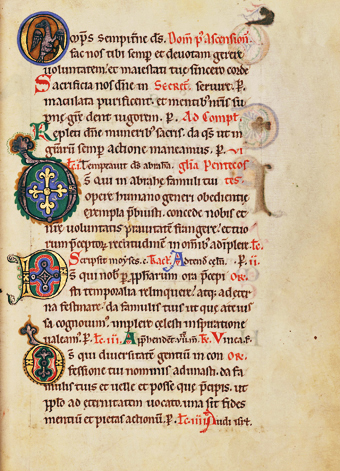 Omps sempitne ds. Dom p ascension.
fac nos tibi semp et deuotam gerere
uoluntatem. et maiestati tue sincero corde
Sacrificia nos dne in Secret. seruire. P.
maculata purificent. et mentib; nris su
pne gre dent uigorem. P. Ad Compl.
Repleti dne munerib; sacris. da qs ut in
gratiarum semp actione maneamus. P.
lc.i. Temptauit ds abraha. Pentecos
Ds qui in abrahe famuli tui tes
opere humano generi obedientie
exempla pbuisti. concede nobis et
nre uoluntatis prauitate frangere. et tuo
rum pceptor rectitudine in omib; adimplere. lc.
Scripsit moyses. c. Tract. Attende celu. P. ii
Ds qui nob p ppharum ora pcepi or.
sti temporalia relinquere. atq; ad eter
na festinare. da famulis tuis ut que a te ius
sa cognouim. implere celesti inspiratione
ualeam. P. lc.iii. Apphendent .vii. m. Tc. Vinea f.
Ds qui diuersitate gentium in con or.
fessione tui nominis adunasti. da fa
mulis tuis et uelle et posse que pcipis. ut
pplo ad eternitatem uocato. una sit fides
mentiu et pietas actionu. P. lc.iiii. Audi isrl.